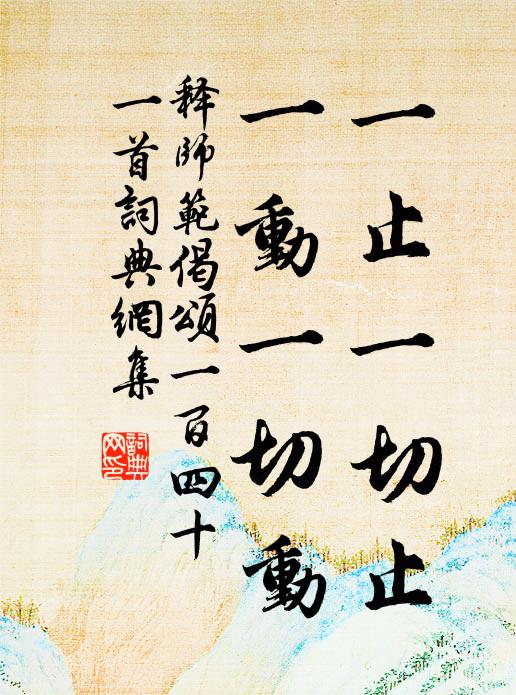 一止一切止
一動一切動
释師範偈頌一百四十
一首詞典網集
詞典網印